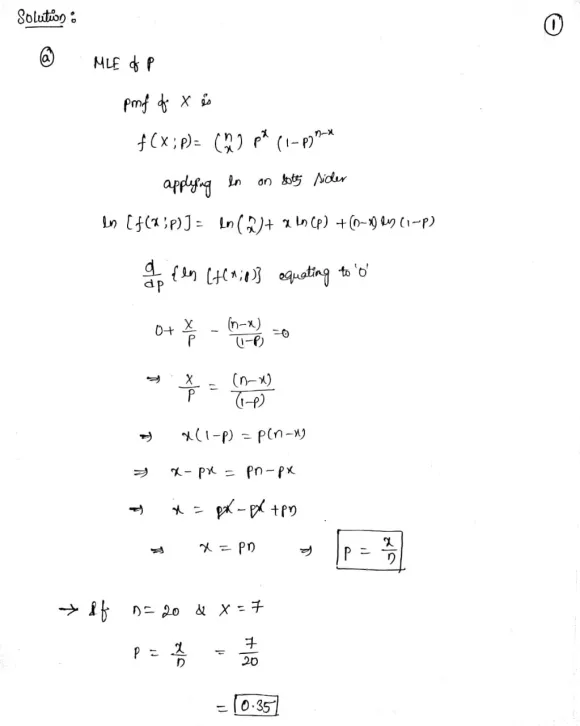 Solution :
①
ⓐ MLE of P
pmf of X is
f(X;P) = (n x) p^x (1-P)^{n-x}
applying ln on both sides
ln [f(x;P)] = ln(n x) + x ln(P) + (n-x) ln(1-P)
d/dp {ln [f(x;P)]} equating to '0'
0 + X/P - (n-x)/(1-P) = 0
⇒ X/P = (n-x)/(1-P)
⇒ x(1-P) = P(n-x)
⇒ x - px = pn - px
⇒ x = px - px + pn
⇒ x = pn ⇒ P = x/n
→ If n = 20 & X = 7
P = x/n = 7/20
= 0.35